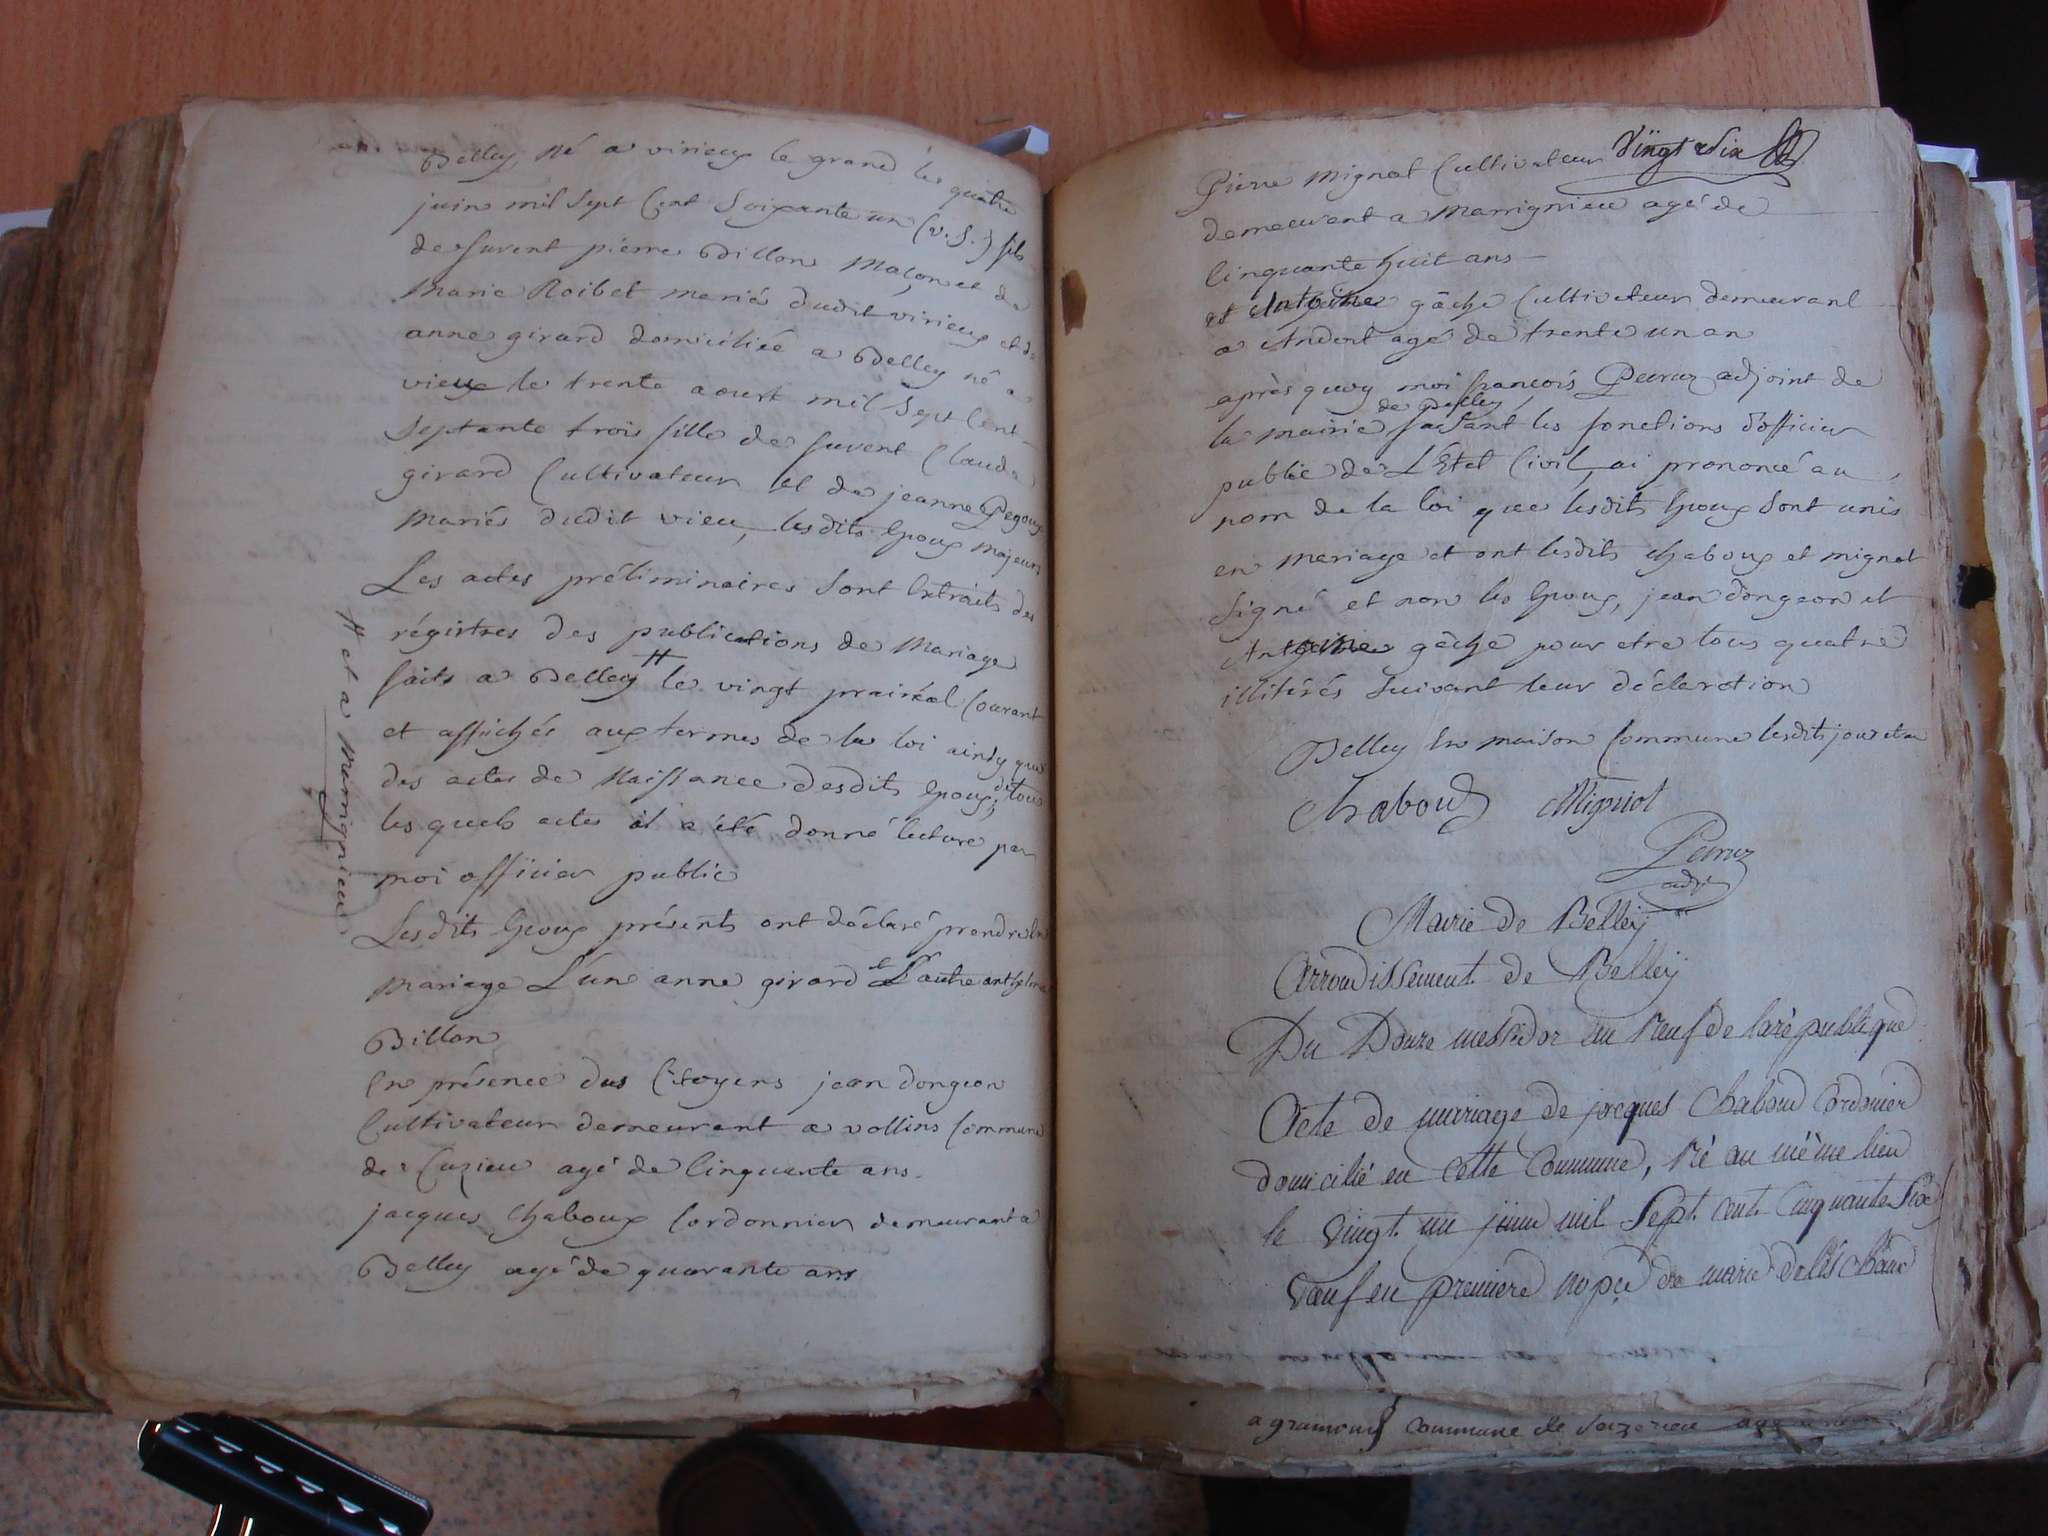 Belley, né a virieux le grand le quatre
juin mil sept Cent Soixante un (v. S.) fils
de fuvent pierre Billon Maçon et de
Marie Roibet mariés dudit virieux et de
anne girard domiciliée a Belley né a
vieux le trente aoust mil Sept Cent
Septante trois fille de fuvent Claude
girard Cultivateur et de jeanne Pegoux
Mariés dudit vieu, lesdits Epoux majeurs
Les actes préliminaires Sont Extraits des
régistres des publications de Mariage
faits a Belley # le vingt prairéal Courant
et affichés aux termes de la loi ainsy que
des actes de Naissance desdits Epoux, de tous
les quels actes il a été donné lecture par
moi officier public
Lesdits Epoux présents ont déclaré prendre En
Mariage L'une anne girard et L'autre anthelme
Billon
En présence des Citoyens jean dongeon
Cultivateur demeurant a vollins Commune
de Cuzieu agé de Cinquante ans.
jacques Chaboux Cordonnier demeurant a
Belley agé de quarante ans
# et a Marrignieu
Vingt Six
Pierre Mignot Cultivateur
demeurent a Marrignieu agé de
Cinquante huit ans
et Antoine gâche Cultivateur demeurant
a Andert agé de trente un an
après quoy moi françois Peiruz adjoint de
la mairie de Belley faisant les fonctions d'officier
public de L'Etat Civil, ai prononcé au
nom de la loi que lesdits Epoux Sont unis
en Mariage et ont lesdits Chaboux et mignot
Signé et non les Epoux, jean dongeon et
Antoine gâche pour etre tous quatre
illitérés Suivant leur déclaration
Belley En maison Commune lesdits jour et an
Chaboud Mignot
Peiruz
adj
Mairie de Belleÿ
Arrondissement de Belleÿ
Du Douze messidor an Neuf de la république
Acte de mariage de jacques Chaboud Cordonier
domicilié en cette Commune, Né au même lieu
le vingt un juin mil Sept cent Cinquante Six
Vœuf en premiere nopce de marie
Commune de